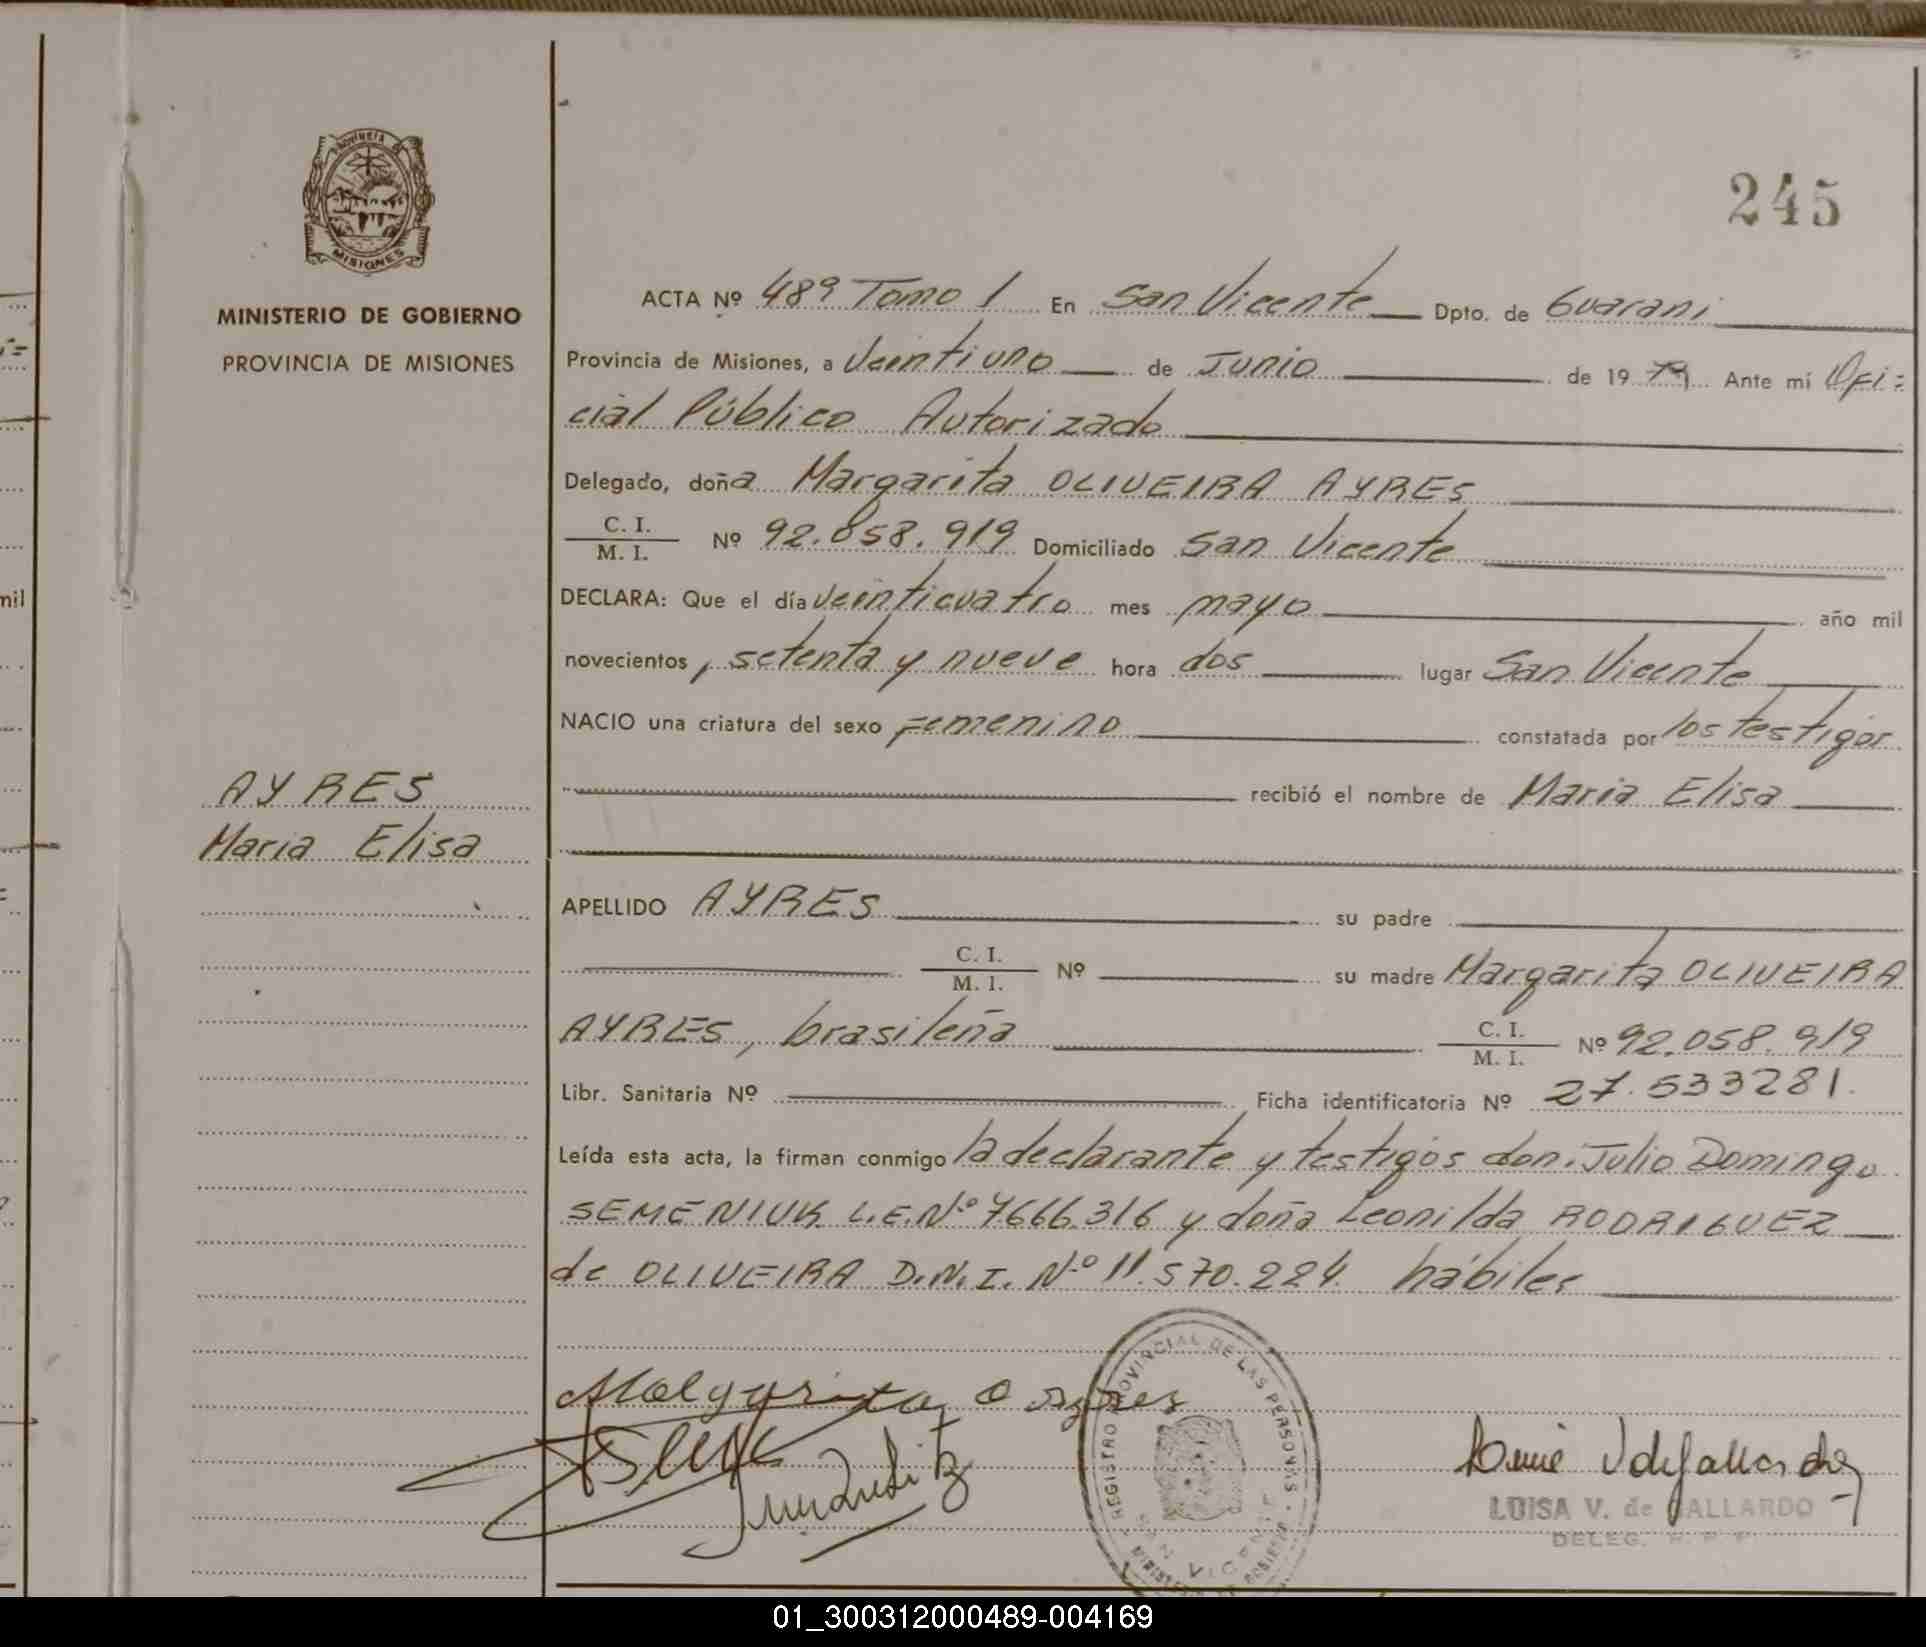 PROVINCIA DE
MISIONES
MINISTERIO DE GOBIERNO
PROVINCIA DE MISIONES
AYRES
Maria Elisa
245
ACTA Nº 489 Tomo 1 En San Vicente Dpto. de Guarani
Provincia de Misiones, a Veintiuno de Junio de 1979 Ante mí Ofi=
cial Público Autorizado
Delegado, doña Margarita OLIVEIRA AYRES
C. I.
M. I. Nº 92.858.919 Domiciliado San Vicente
DECLARA: Que el día veinticuatro mes mayo año mil
novecientos, setenta y nueve hora dos lugar San Vicente
NACIO una criatura del sexo Femenino constatada por los testigos
recibió el nombre de Maria Elisa
APELLIDO AYRES su padre
C. I.
M. I. Nº su madre Margarita OLIVEIRA
AYRES, brasileña C. I.
M. I. Nº 92.058.919
Libr. Sanitaria Nº Ficha identificatoria Nº 27.533281.
Leída esta acta, la firman conmigo la declarante y testigos don. Julio Domingo
SEMENIUK L.E.Nº 7666.316 y doña Leonilda RODRIGUEZ
de OLIVEIRA D.N.I. Nº 11.570.224. hábiles
REGISTRO PROVINCIAL DE LAS PERSONAS
SAN VICENTE
LUISA V. de GALLARDO
DELEG.
mil
01_300312000489-004169